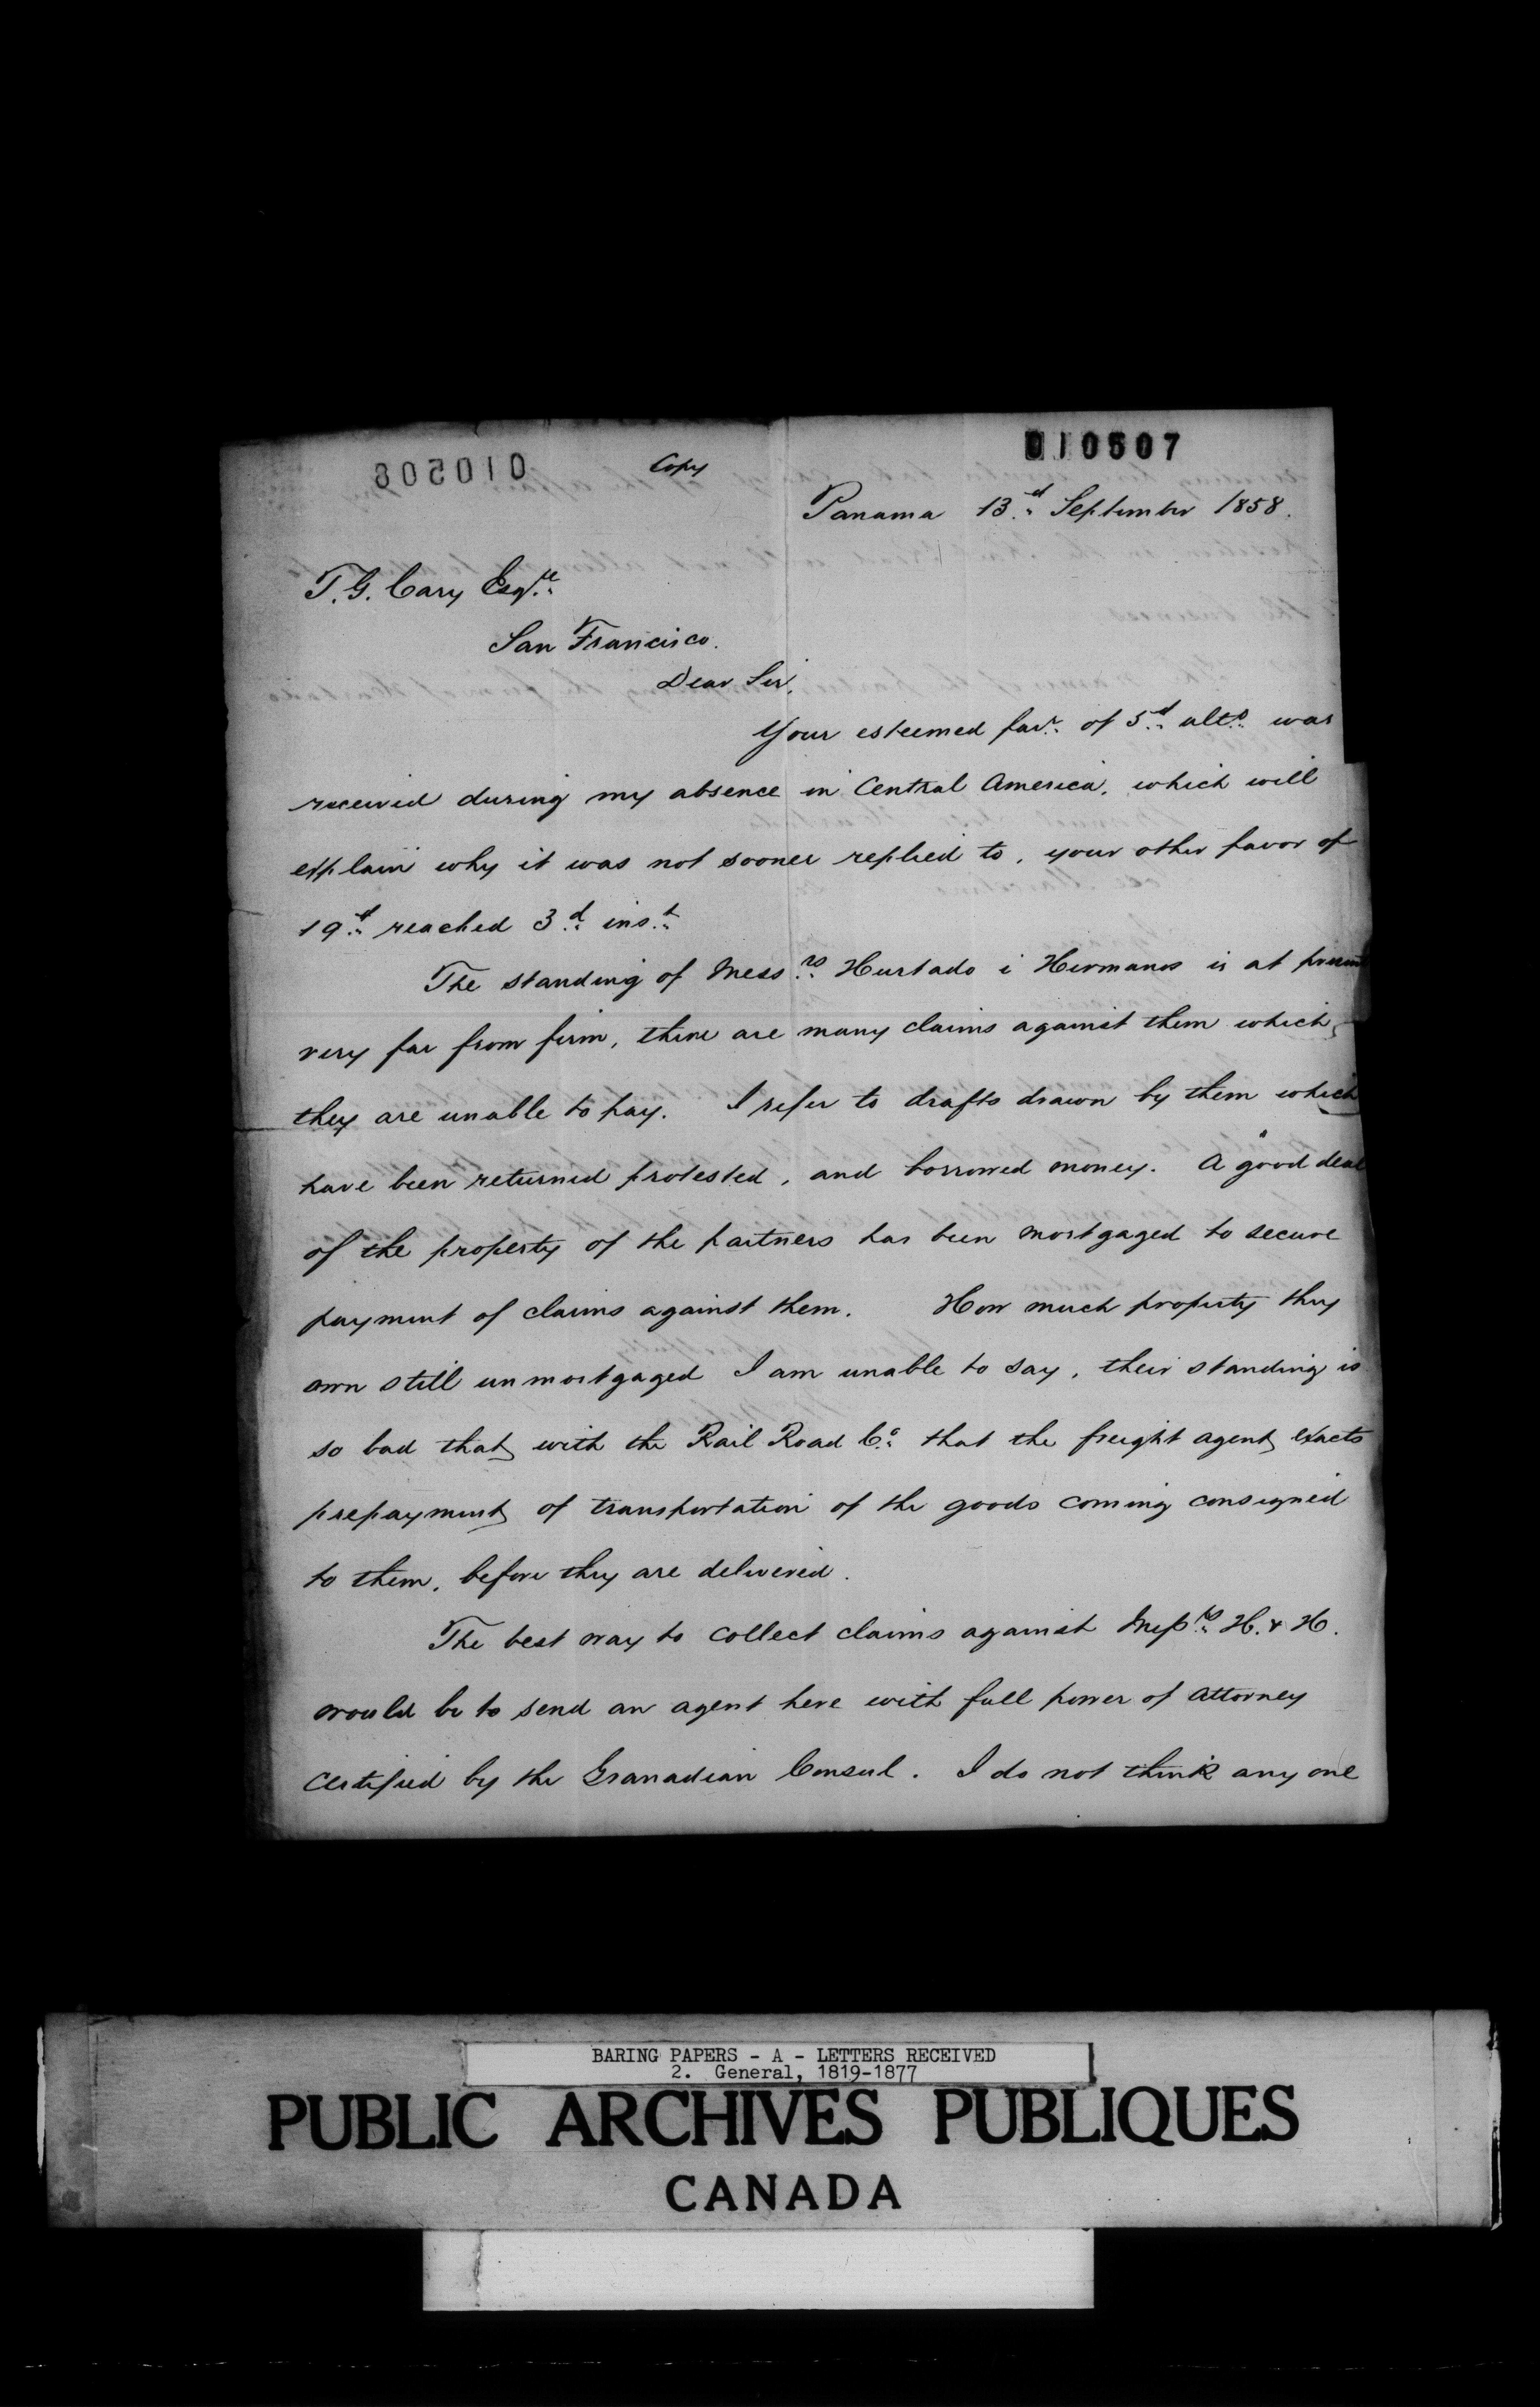 010507
Copy
Panama 13.d September 1858.
T. G. Cary Esqre.
San Francisco.
Dear Sir,
Your esteemed favr. of 5.d ulto. was
received during my absence in Central America, which will
explain why it was not sooner replied to, your other favor of
19.d reached 3.d inst.
The standing of Messrs. Hurtado i Hermanos is at present
very far from firm, there are many claims against them which
they are unable to pay. I refer to drafts drawn by them which
have been returned protested, and borrowed money. A good deal
of the property of the partners has been mortgaged to secure
payment of claims against them. How much property they
own still unmortgaged I am unable to say, their standing is
so bad that with the Rail Road Co. that the freight agent exacts
prepayment of transportation of the goods coming consigned
to them, before they are delivered.
The best way to collect claims against Messrs. H. & H.
would be to send an agent here with full power of attorney
certified by the Granadian Consul. I do not think any one
BARING PAPERS - A - LETTERS RECEIVED
2. General, 1819-1877
PUBLIC ARCHIVES PUBLIQUES
CANADA